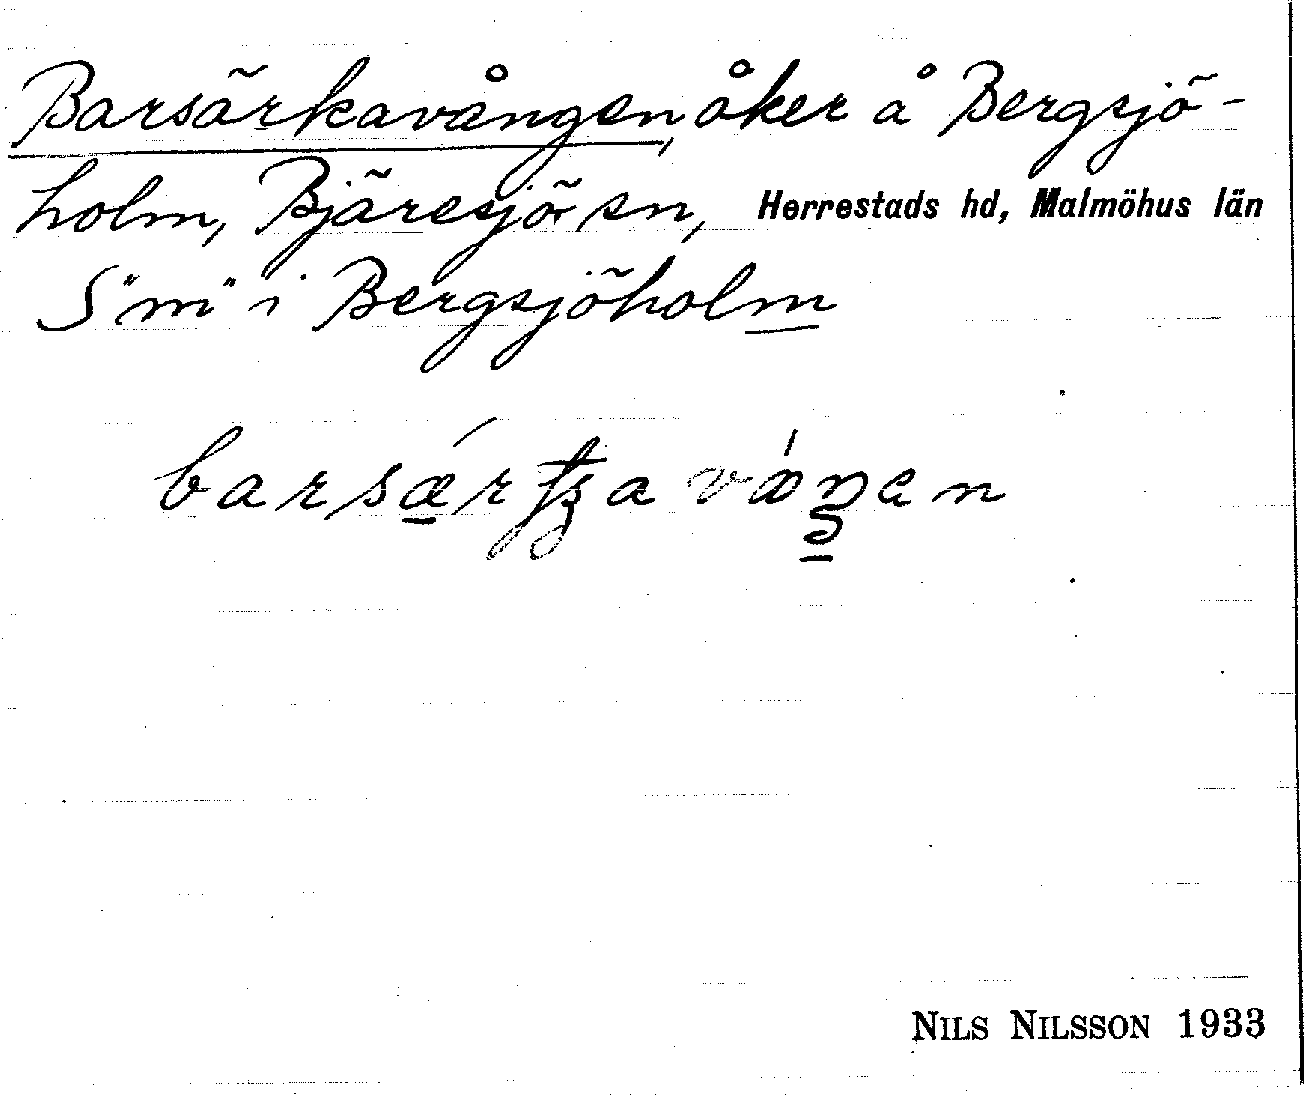 Barsärkavången, åker å Bergsjö-
holm, Bjäresjö sn, Herrestads hd, Malmöhus län
S "m" i Bergsjöholm
NILS NILSSON 1933